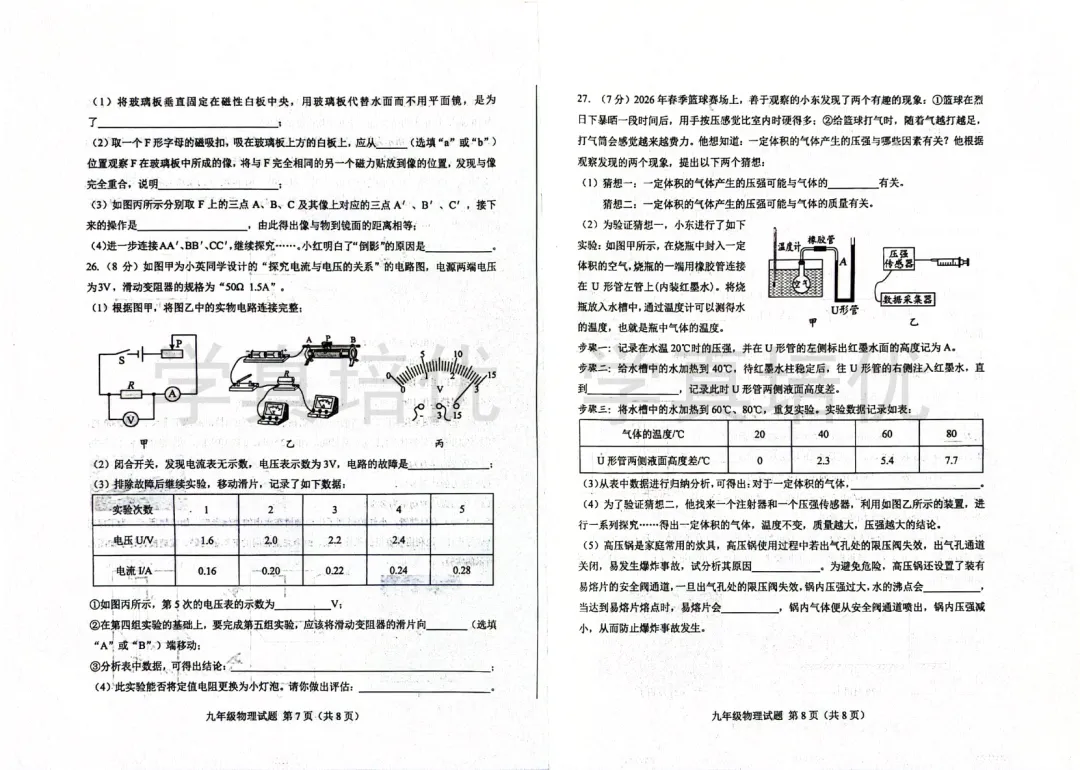 (1)将玻璃板垂直固定在磁性白板中央，用玻璃板代替水面而不用平面镜，是为
了____________________;
(2)取一个F形字母的磁吸扣，吸在玻璃板上方的白板上，应从______(选填“a”或“b”)
位置观察F在玻璃板中所成的像，将与F完全相同的另一个磁力贴放到像的位置，发现与像
完全重合，说明____________________;
(3)如图丙所示分别取F上的三点A、B、C及其像上对应的三点A′、B′、C′，接下
来的操作是____________________，由此得出像与物到镜面的距离相等;
(4)进一步连接AA′、BB′、CC′，继续探究……。小红明白了“倒影”的原因是__________。
26.(8分)如图甲为小英同学设计的“探究电流与电压的关系”的电路图，电源两端电压
为3V，滑动变阻器的规格为“50Ω 1.5A”。
(1)根据图甲，将图乙中的实物电路连接完整;
S P R A V
A P B R
0 5 10 15
0 1 2 3
V
- 3 15
甲 乙 丙
(2)闭合开关，发现电流表无示数，电压表示数为3V，电路的故障是____________;
(3)排除故障后继续实验，移动滑片，记录了如下数据:
实验次数 1 2 3 4 5
电压U/V 1.6 2.0 2.2 2.4
电流I/A 0.16 0.20 0.22 0.24 0.28
①如图丙所示，第5次的电压表的示数为__________V;
②在第四组实验的基础上，要完成第五组实验，应该将滑动变阻器的滑片向________(选填
“A”或“B”)端移动;
③分析表中数据，可得出结论:____________________;
(4)此实验能否将定值电阻更换为小灯泡。请你做出评估:____________________。
九年级物理试题 第7页(共8页)
27.(7分)2026年春季篮球赛场上，善于观察的小东发现了两个有趣的现象:①篮球在烈
日下暴晒一段时间后，用手按压感觉比室内时硬得多;②给篮球打气时，随着气越打越足，
打气筒会感觉越来越费力。他想知道:一定体积的气体产生的压强与哪些因素有关?他根据
观察发现的两个现象，提出以下两个猜想:
(1)猜想一:一定体积的气体产生的压强可能与气体的__________有关。
猜想二:一定体积的气体产生的压强可能与气体的质量有关。
(2)为验证猜想一，小东进行了如下
实验:如图甲所示，在烧瓶中封入一定
体积的空气，烧瓶的一端用橡胶管连接
在U形管左管上(内装红墨水)。将烧
瓶放入水槽中，通过温度计可以测得水
的温度，也就是瓶中气体的温度。
温度计 橡胶管 A 空气 U形管
甲
压强
传感器
数据采集器
乙
步骤一:记录在水温20℃时的压强，并在U形管的左侧标出红墨水面的高度记为A。
步骤二:给水槽中的水加热到40℃，待红墨水柱稳定后，往U形管的右侧注入红墨水，直
到__________________，记录此时U形管两侧液面高度差。
步骤三:将水槽中的水加热到60℃、80℃，重复实验。实验数据记录如表:
气体的温度/℃ 20 40 60 80
U形管两侧液面高度差/℃ 0 2.3 5.4 7.7
(3)从表中数据进行归纳分析，可得出:对于一定体积的气体，____________________。
(4)为了验证猜想二，他找来一个注射器和一个压强传感器，利用如图乙所示的装置，进
行一系列探究……得出一定体积的气体，温度不变，质量越大，压强越大的结论。
(5)高压锅是家庭常用的炊具，高压锅使用过程中若出气孔处的限压阀失效，出气孔通道
关闭，易发生爆炸事故，试分析其原因____________。为避免危险，高压锅还设置了装有
易熔片的安全阀通道，一旦出气孔处的限压阀失效，锅内压强过大，水的沸点会__________，
当达到易熔片熔点时，易熔片会__________，锅内气体便从安全阀通道喷出，锅内压强减
小，从而防止爆炸事故发生。
九年级物理试题 第8页(共8页)
学真培优
学真培优